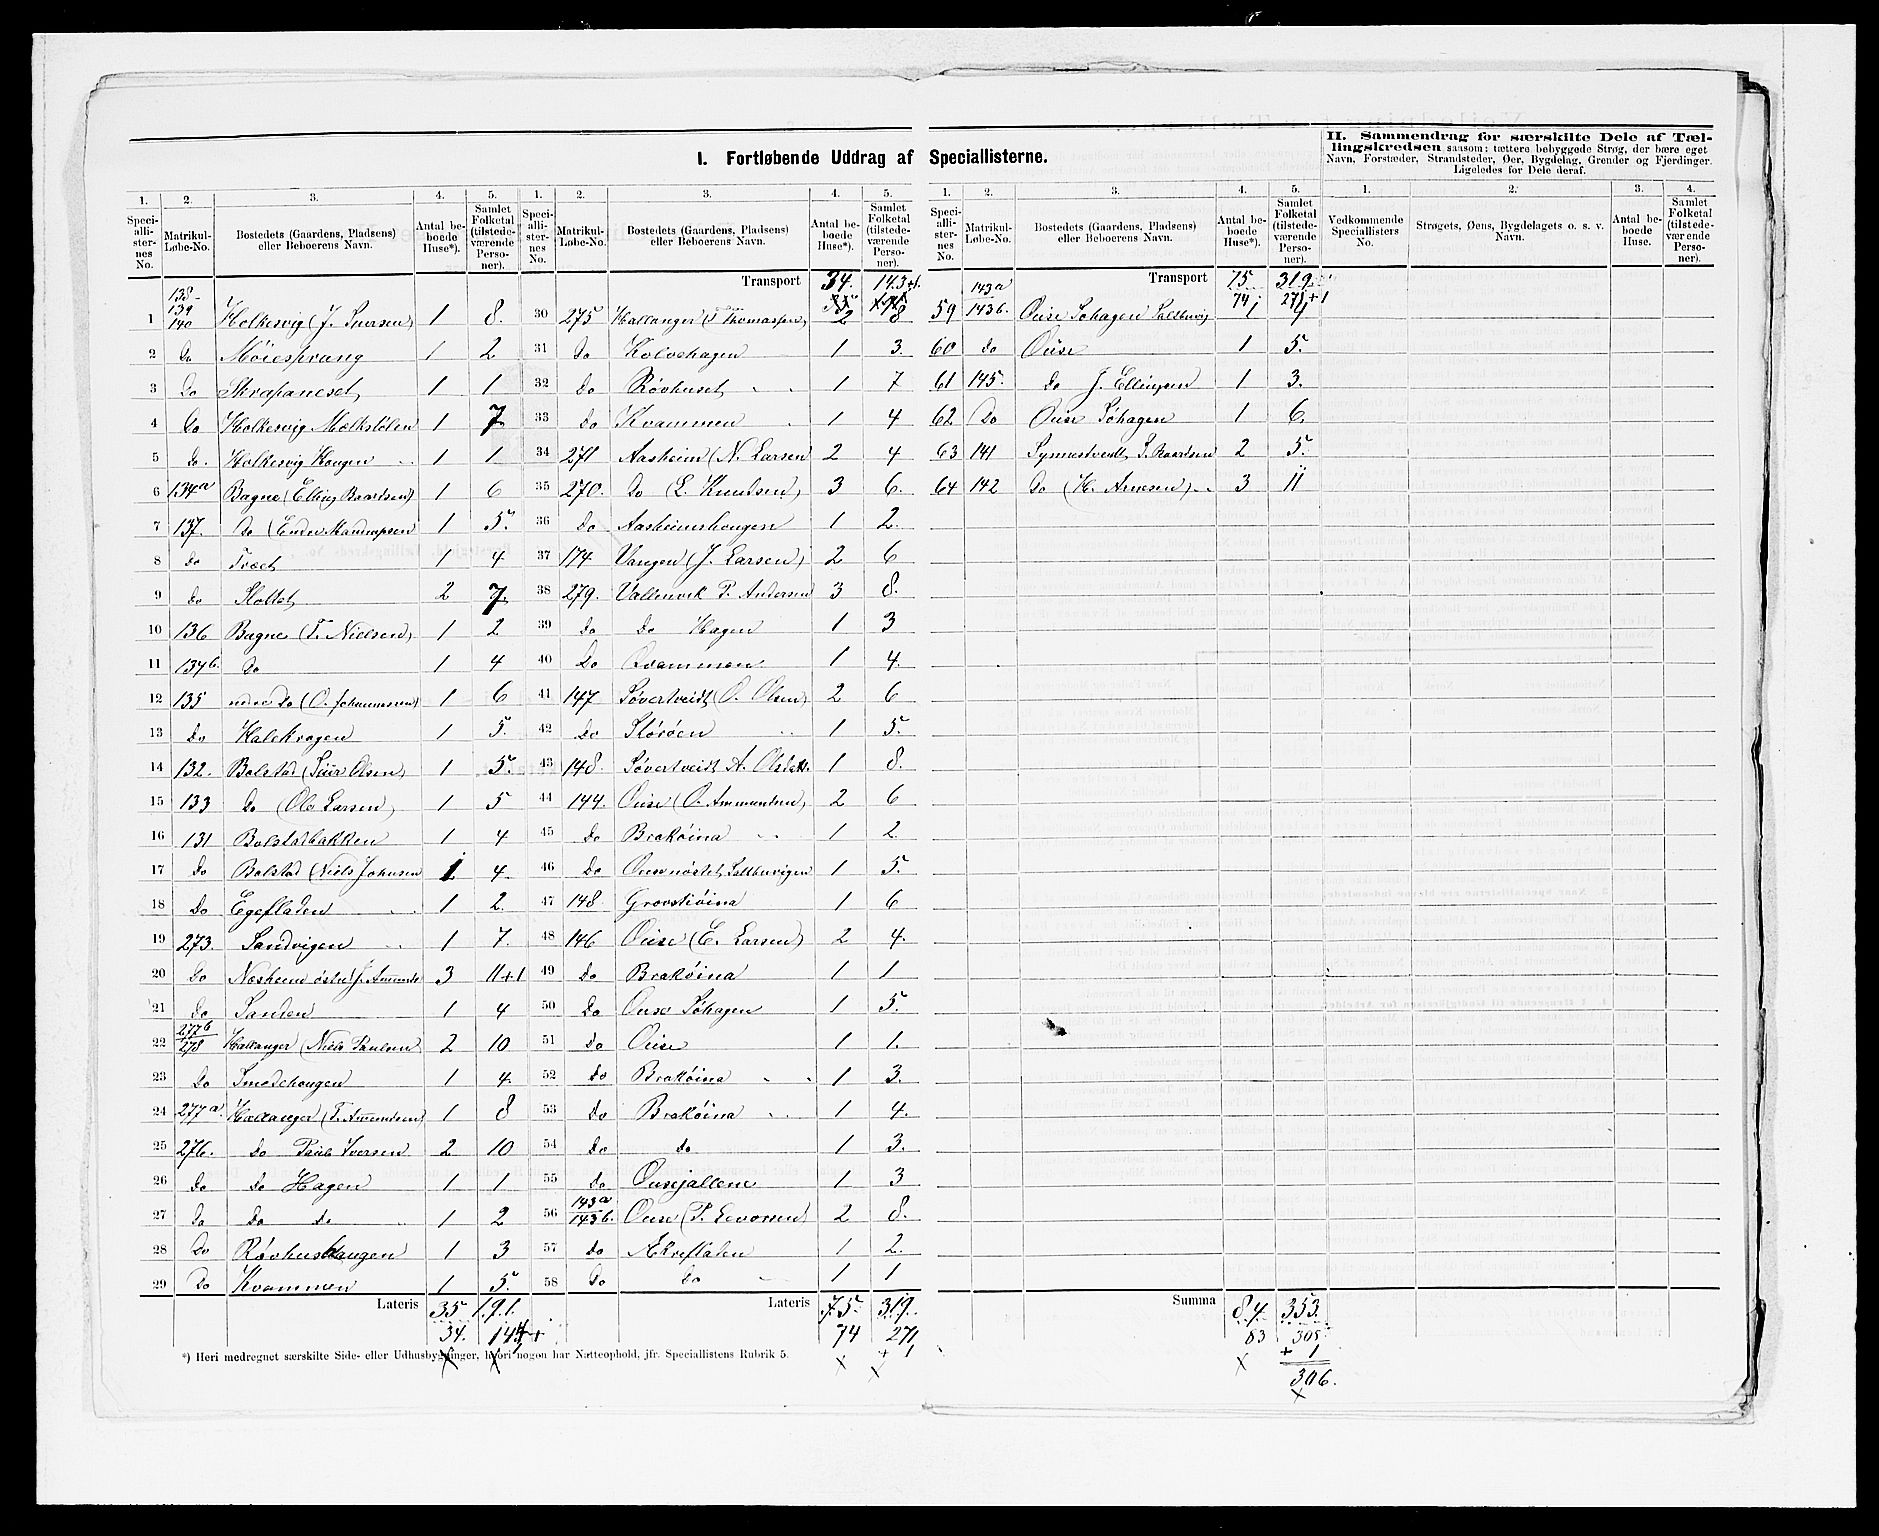 I. Fortløbende Uddrag af Speciallisterne.
II. Sammendrag for særskilte Dele af Tæl-
lingskredsen saasom: tættere bebyggede Strøg, der bære eget
Navn, Forstæder, Strandsteder, Øer, Bygdelag, Grender og Fjerdinger.
Ligeledes for Dele deraf.
1. 2. 3. 4. 5.
Speciallisternes No. Matrikul-Løbe-No. Bostedets (Gaardens, Pladsens) eller Beboerens Navn. Antal beboede Huse*). Samlet Folketal (tilstedeværende Personer).
1 138-139 140 Holkesvig (J. Iversen) 1 8.
2 Do Möiesprang 1 2
3 Do Skrapaneset 1 1
4 Do Holkesvig Mælkstölen 1 7
5 do. Holkesvig Haugen 1 1
6 134a Bagne (Elling Baardsen) 1 6
7 137. Do (Endre Mandrupsen 1 5.
8 do Træet 1 4
9 do Slottet 2 7.
10 136 Bagne (T. Nielsen) 1 2
11 134b. Do 1 4
12 135 nedre do (O. Johannesen) 1 6
13 Do Halekragen 1 5.
14 132. Bolstad (Siur Olsen) 1 5.
15 133 Do (Ole Larsen) 1 5
16 131 Bolstadbakken 1 4
17 do Bolstad (Niels Johnsen 1 4.
18 Do Egefladen 1 2.
19 273. Sandvigen 1 7.
20 Do Næsheim östre J. Amunds 3 11+1
21 Do Sanden 1 4
22 277b 278 Hallanger (Niels Paulsen) 2 10
23 Do Smedehaugen 1 4.
24 277a. Hallanger (T. Amundsen) 1 8
25 276. do Paul Iversen 2 10
26 Do do Hagen 1 1
27 Do do do 1 2
28 Do Røvhushaugen 1 3
29 Do Kvammen 1 5.
Lateris 35 191.
34. 144+
1. 2. 3. 4. 5.
Speciallisternes No. Matrikul-Løbe-No. Bostedets (Gaardens, Pladsens) eller Beboerens Navn. Antal beboede Huse*). Samlet Folketal (tilstedeværende Personer).
Transport 34. 143+1.
30 275 Hallanger (T Thomassen) 2 8
31 Do Kolvehagen 1 3.
32 do Røvhuset 1 7
33 do Kvammen 1 4
34 271 Aasheim (N. Larsen 2 4
35 270. Do (L. Knudsen) 3 6.
36 do Aasheimshaugen 1 2.
37 174 Vangen (J. Larsen) 2 6
38 279. Vallenvik P. Andersen 3 8.
39 do do Hagen 1 3
40 Do Qvammen 1 4.
41 147 Søvertveidt (O. Olsen) 2 6
42 Do Störöen 1 5.
43 148. Søvertveidt A. Olsdatt. 1 8.
44 144. Ouse (O. Ammundsen) 2 6
45 Do Braköina 1 2.
46 Do Ousenöstet Saltbuvigen 1 5.
47 148. Grovstiöina 1 6
48 146 Ouse (E. Larsen) 2 4.
49 Do Braköina 1 1
50 Do Ouse Söhagen 1 5.
51 do Ouse 1 1.
52 do Braköina 1 3.
53 Do Braköina 1 4.
54 do do 1 3.
55 do Ousejallene 1 3
56 143a 143b. Ouse (P. Levorsen) 2 8.
57 do Ækreflaten 1 2.
58 Do Do 1 1
Lateris 75. 319.
74 271
+ 1
1. 2. 3. 4. 5.
Speciallisternes No. Matrikul-Løbe-No. Bostedets (Gaardens, Pladsens) eller Beboerens Navn. Antal beboede Huse*). Samlet Folketal (tilstedeværende Personer).
Transport 75. 319.
74 271+1
59 143a 143b. Ouse Sohagen Saltbuvig 1 4
60 do Ouse 1 5.
61 145. do J. Ellingsen 1 3.
62 Do Ouse Söhagen 1 6.
63 141 Synnestvedt S. Baardsen 2 5.
64 142 Do (H. Arnesen) 3 11
Summa 84. 353.
83 305
+ 1
306.
1. 2. 3. 4.
Vedkommende Speciallisters No. Strøgets, Øens, Bygdelagets o. s. v. Navn. Antal beboede Huse. Samlet Folketal (tilstedeværende Personer).
*) Heri medregnet særskilte Side- eller Udhusbygninger, hvori nogon har Natteophold, jfr. Speciallistens Rubrik 5.